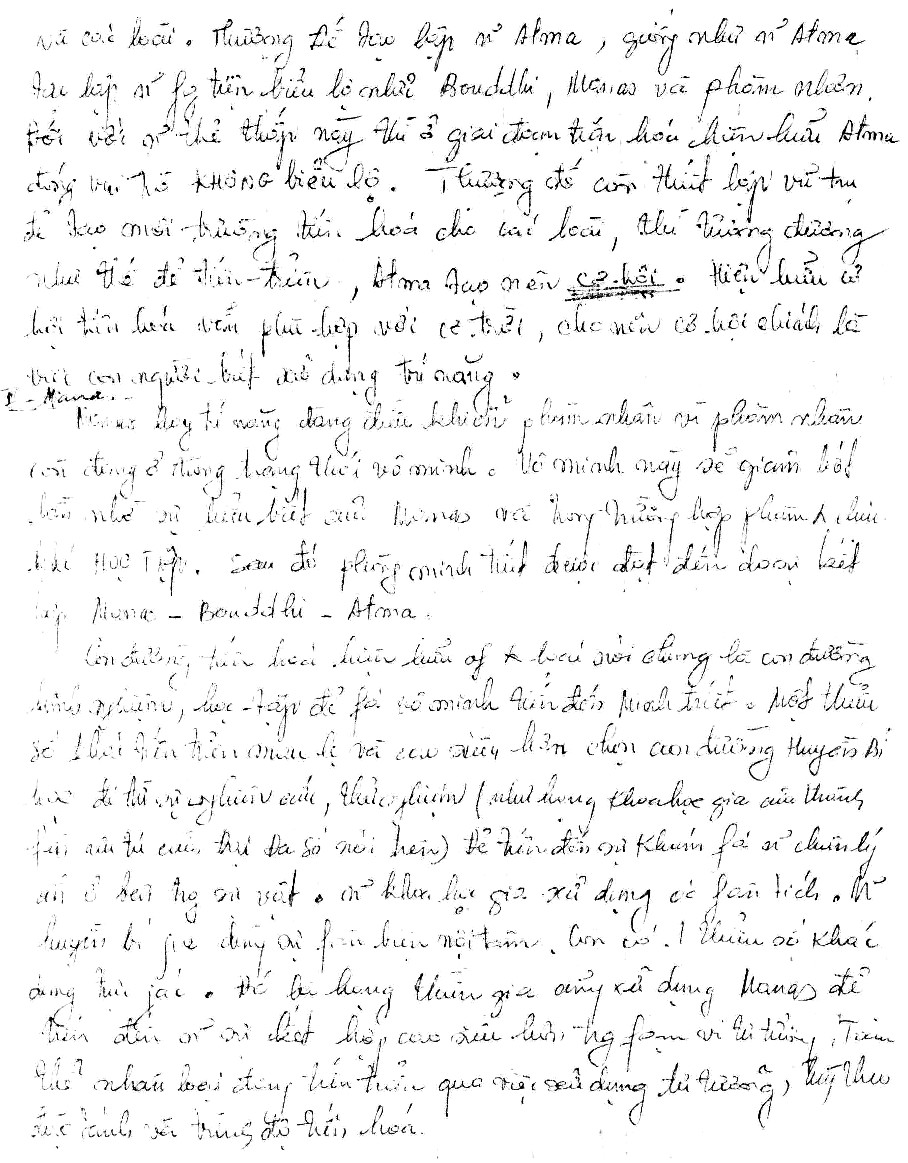 và các loài. Thượng Đế tạo lập n~ Atma, giống như n~ Atma
tạo lập n~ fg tiện biểu lộ như Bouddhi, Manas và phàm nhân.
Đối với n~ thể thấp này thì ở giai đoạn tiến hoá hiện hữu Atma
đóng vai trò KHÔNG biểu lộ. Thượng đế còn thiết lập vũ trụ
để tạo môi-trường tiến hoá cho các loài, thì tương đương
như thế để tiến-triển, Atma tạo nên cơ-hội. Hiện hữu cơ
hội tiến hoá vẫn phù hợp với cơ trời, cho nên cơ hội chính là
việc con người biết xử dụng trí năng.
I - Manas -
Manas hay trí năng đang điều khiển phàm nhân vì phàm nhân
còn đang ở trong trạng thái vô minh. Vô minh này sẽ giảm bớt
nhờ sự hiểu biết của Manas và trong trường hợp phàm
HỌC TẬP. Sau đó phàm minh triết được đạt đến đoạn kết
hợp Manas - Bouddhi - Atma.
Con đường tiến hoá hiện hữu of loại nói chung là con đường
kinh nghiệm, học-tập để fá vô minh tiến đến Minh triết. Một thiểu
số tiến triển và cao siêu hơn chọn con đường Huyền Bí
học đi từ sự nghiên cứu, thực nghiệm (như hạng Khoa học gia
đa số nói trên) Để tiến đến sự Khám fá n~ chân lý
ẩn ở bên tg sự vật. n~ khoa học gia xử dụng óc fân tích. N~
huyền bí gia dùng sự fân biện nội tâm. Còn có 1 thiểu số khác
dùng trực jác. Đó là hạng Thiền gia cũng xử dụng Manas để
tiến đến n~ sự kết hợp cao siêu hơn tg fạm vi tư tưởng. Toàn
thể nhân loại đang tiến triển qua việc sử dụng tư tưởng, tuỳ theo
đặc tánh và trình độ tiến hoá.